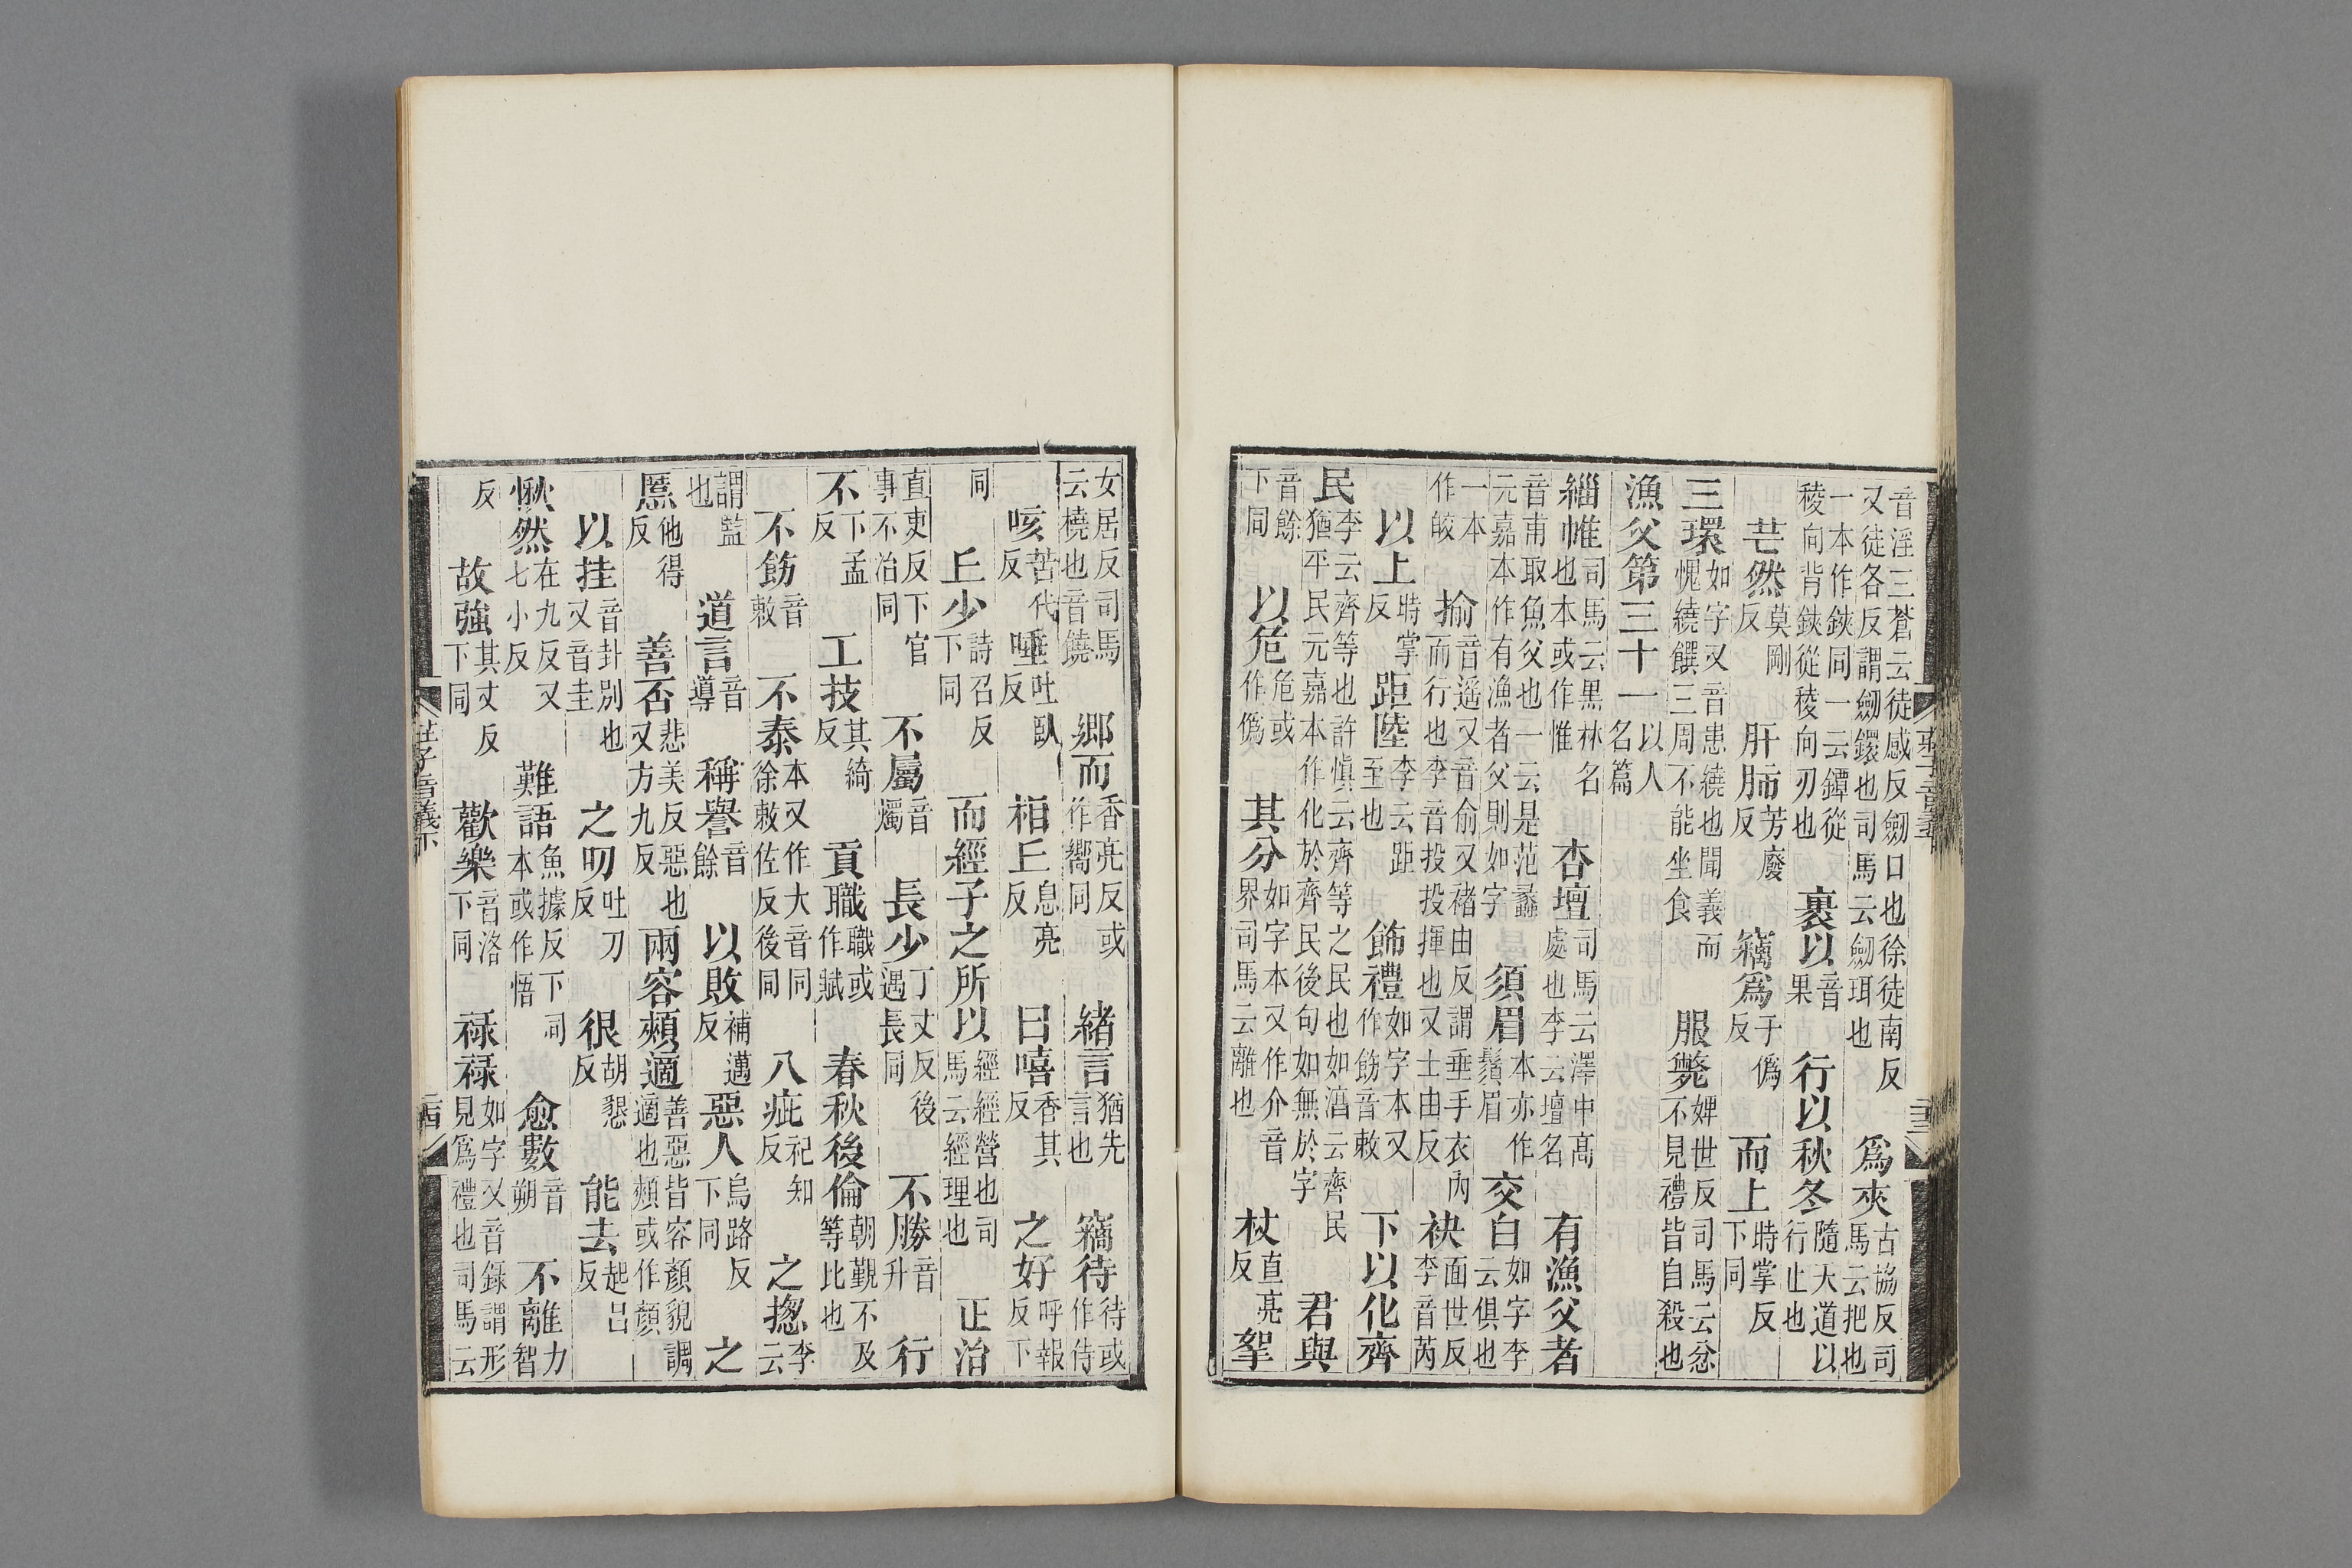 音淫三蒼云徒感反劒口也徐徒南反又徒各反謂劒鐶也司馬云劒珥也爲夾古協反司馬云把也
一本作鋏同一云鐔從稜向背鋏從稜向刃也裹以音果行以秋冬隨大道以行止也
芒然莫剛反肝肺芳廢反竊爲于僞反而上時掌反下同
三環如字又音患繞也聞義而愧繞饌三周不能坐食服斃婢世反司馬云忿不見禮皆自殺也
漁父第三十一以人名篇
緇帷司馬云黑林名也本或作惟杏壇司馬云澤中高處也李云壇名有漁父者
音甫取魚父也一云是范蠡元嘉本作有漁者父則如字須眉本亦作鬚眉交白如字李云俱也
一本作皎揄音遥又音俞又褚由反謂垂手衣內而行也李音投投揮也又士由反袂面世反李音芮
以上時掌反距陸李云距至也飾禮如字本又作飭音敕下以化齊
民李云齊等也許慎云齊等之民也如湻云齊民猶平民元嘉本作化於齊民後句如無於字君與
音餘下同以危危或作僞其分如字本又作介音界司馬云離也杖直亮反挐
女居反司馬云橈也音饒鄉而香亮反或作嚮同緒言猶先言也竊待待或作侍
咳苦代反唾吐臥反相丘息亮反曰嘻香其反之好呼報反下
同丘少詩召反下同而經子之所以經經營也司馬云經理也正治
直吏反下官事不治同不屬音燭長少丁丈反後遇長同不勝音升行
不下孟反工技其綺反貢職職或作賦春秋後倫朝覲不及等比也
不飭音敕不泰本又作大音同徐敕佐反後同八疵祀知反之摠李云
謂監也道言音導稱譽音餘以敗補邁反惡人烏路反下同之
慝他得反善否悲美反惡也又方九反兩容頰適善惡皆容顏貌調適也頰或作顏
以挂音卦別也又音圭之叨吐刀反很胡懇反能去起呂反
愀然在九反又七小反難語魚據反下同本或作悟愈數音朔不離力智
反故強其丈反下同歡樂音洛下同祿祿如字又音錄謂形見爲禮也司馬云
莊子音義下